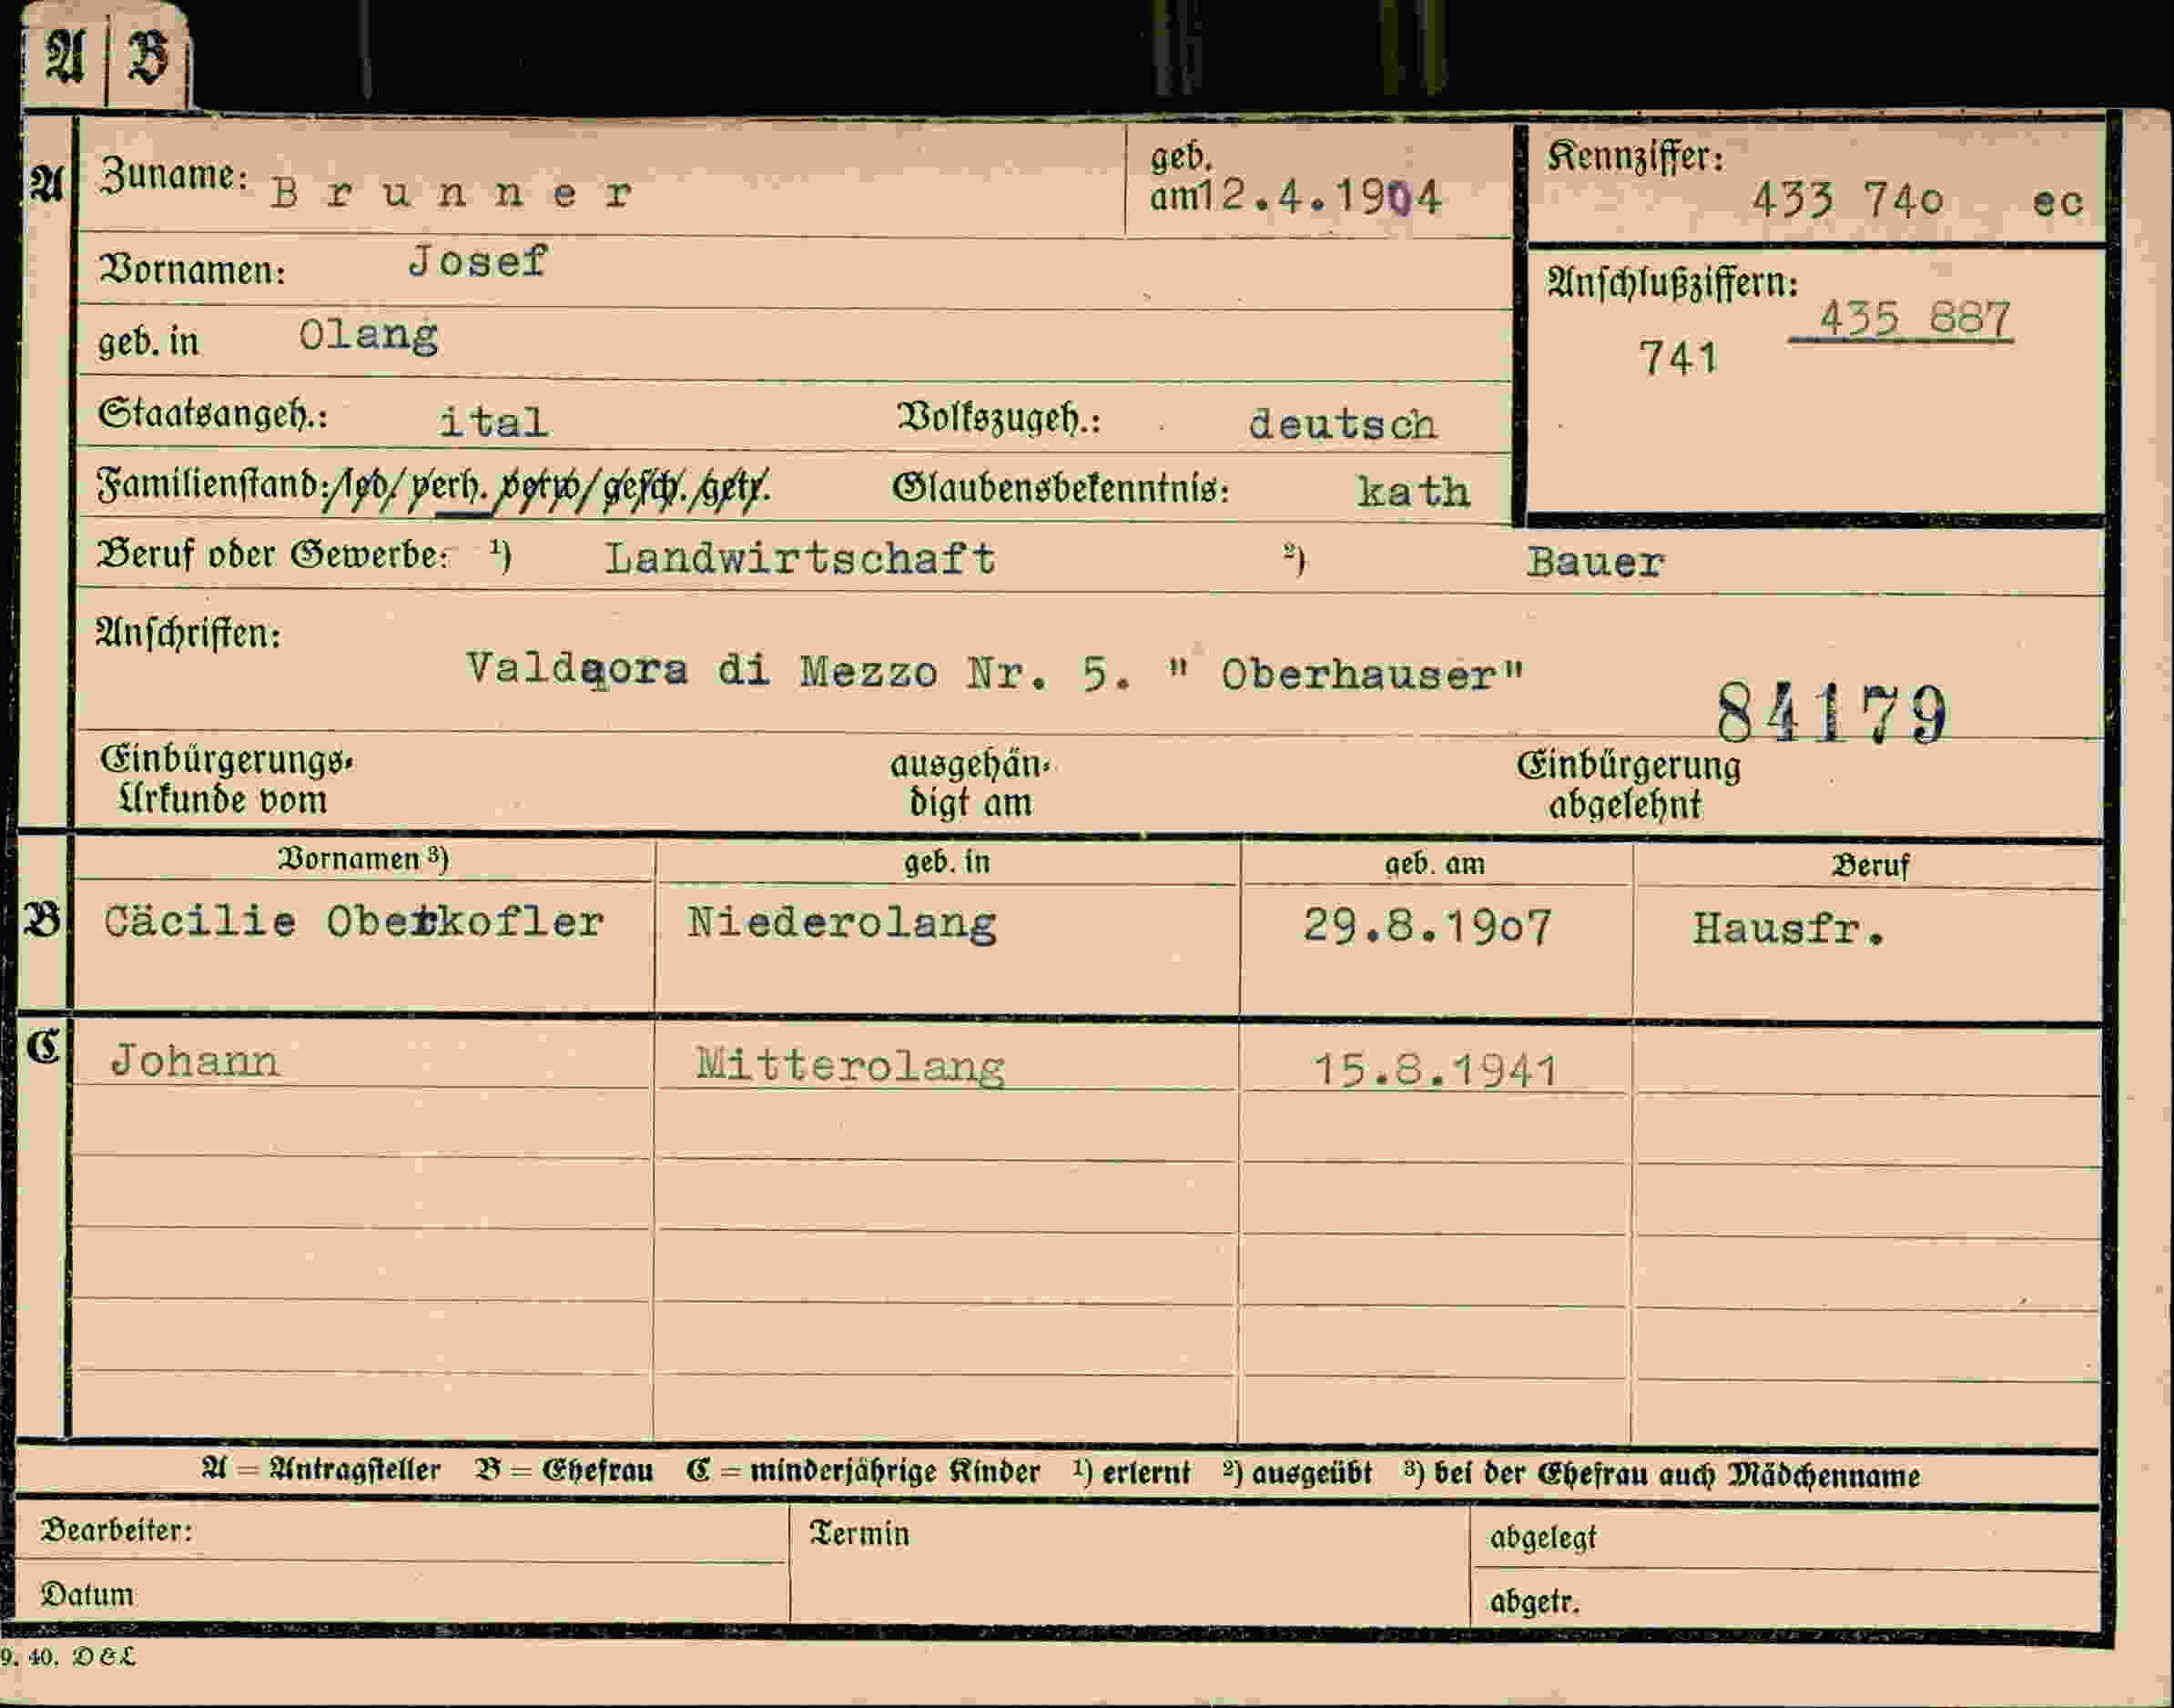 A B
A Zuname: Brunner geb. am 12.4.1904 Kennziffer: 433 740 ec
Vornamen: Josef
geb. in Olang
Anschlußziffern: 435 887
741
Staatsangeh.: ital Volkszugeh.: deutsch
Familienstand: led/ verh. verw/ gesch. /getr. Glaubensbekenntnis: kath
Beruf oder Gewerbe: ¹) Landwirtschaft ²) Bauer
Anschriften:
Valdaora di Mezzo Nr. 5. " Oberhauser"
84179
Einbürgerungs- ausgehän- Einbürgerung
Urkunde vom digt am abgelehnt
Vornamen ³) geb. in geb. am Beruf
B Cäcilie Oberkofler Niederolang 29.8.1907 Hausfr.
C Johann Mitterolang 15.8.1941
A = Antragsteller B = Ehefrau C = minderjährige Kinder ¹) erlernt ²) ausgeübt ³) bei der Ehefrau auch Mädchenname
Bearbeiter: Termin abgelegt
Datum abgetr.
9. 40. D & L